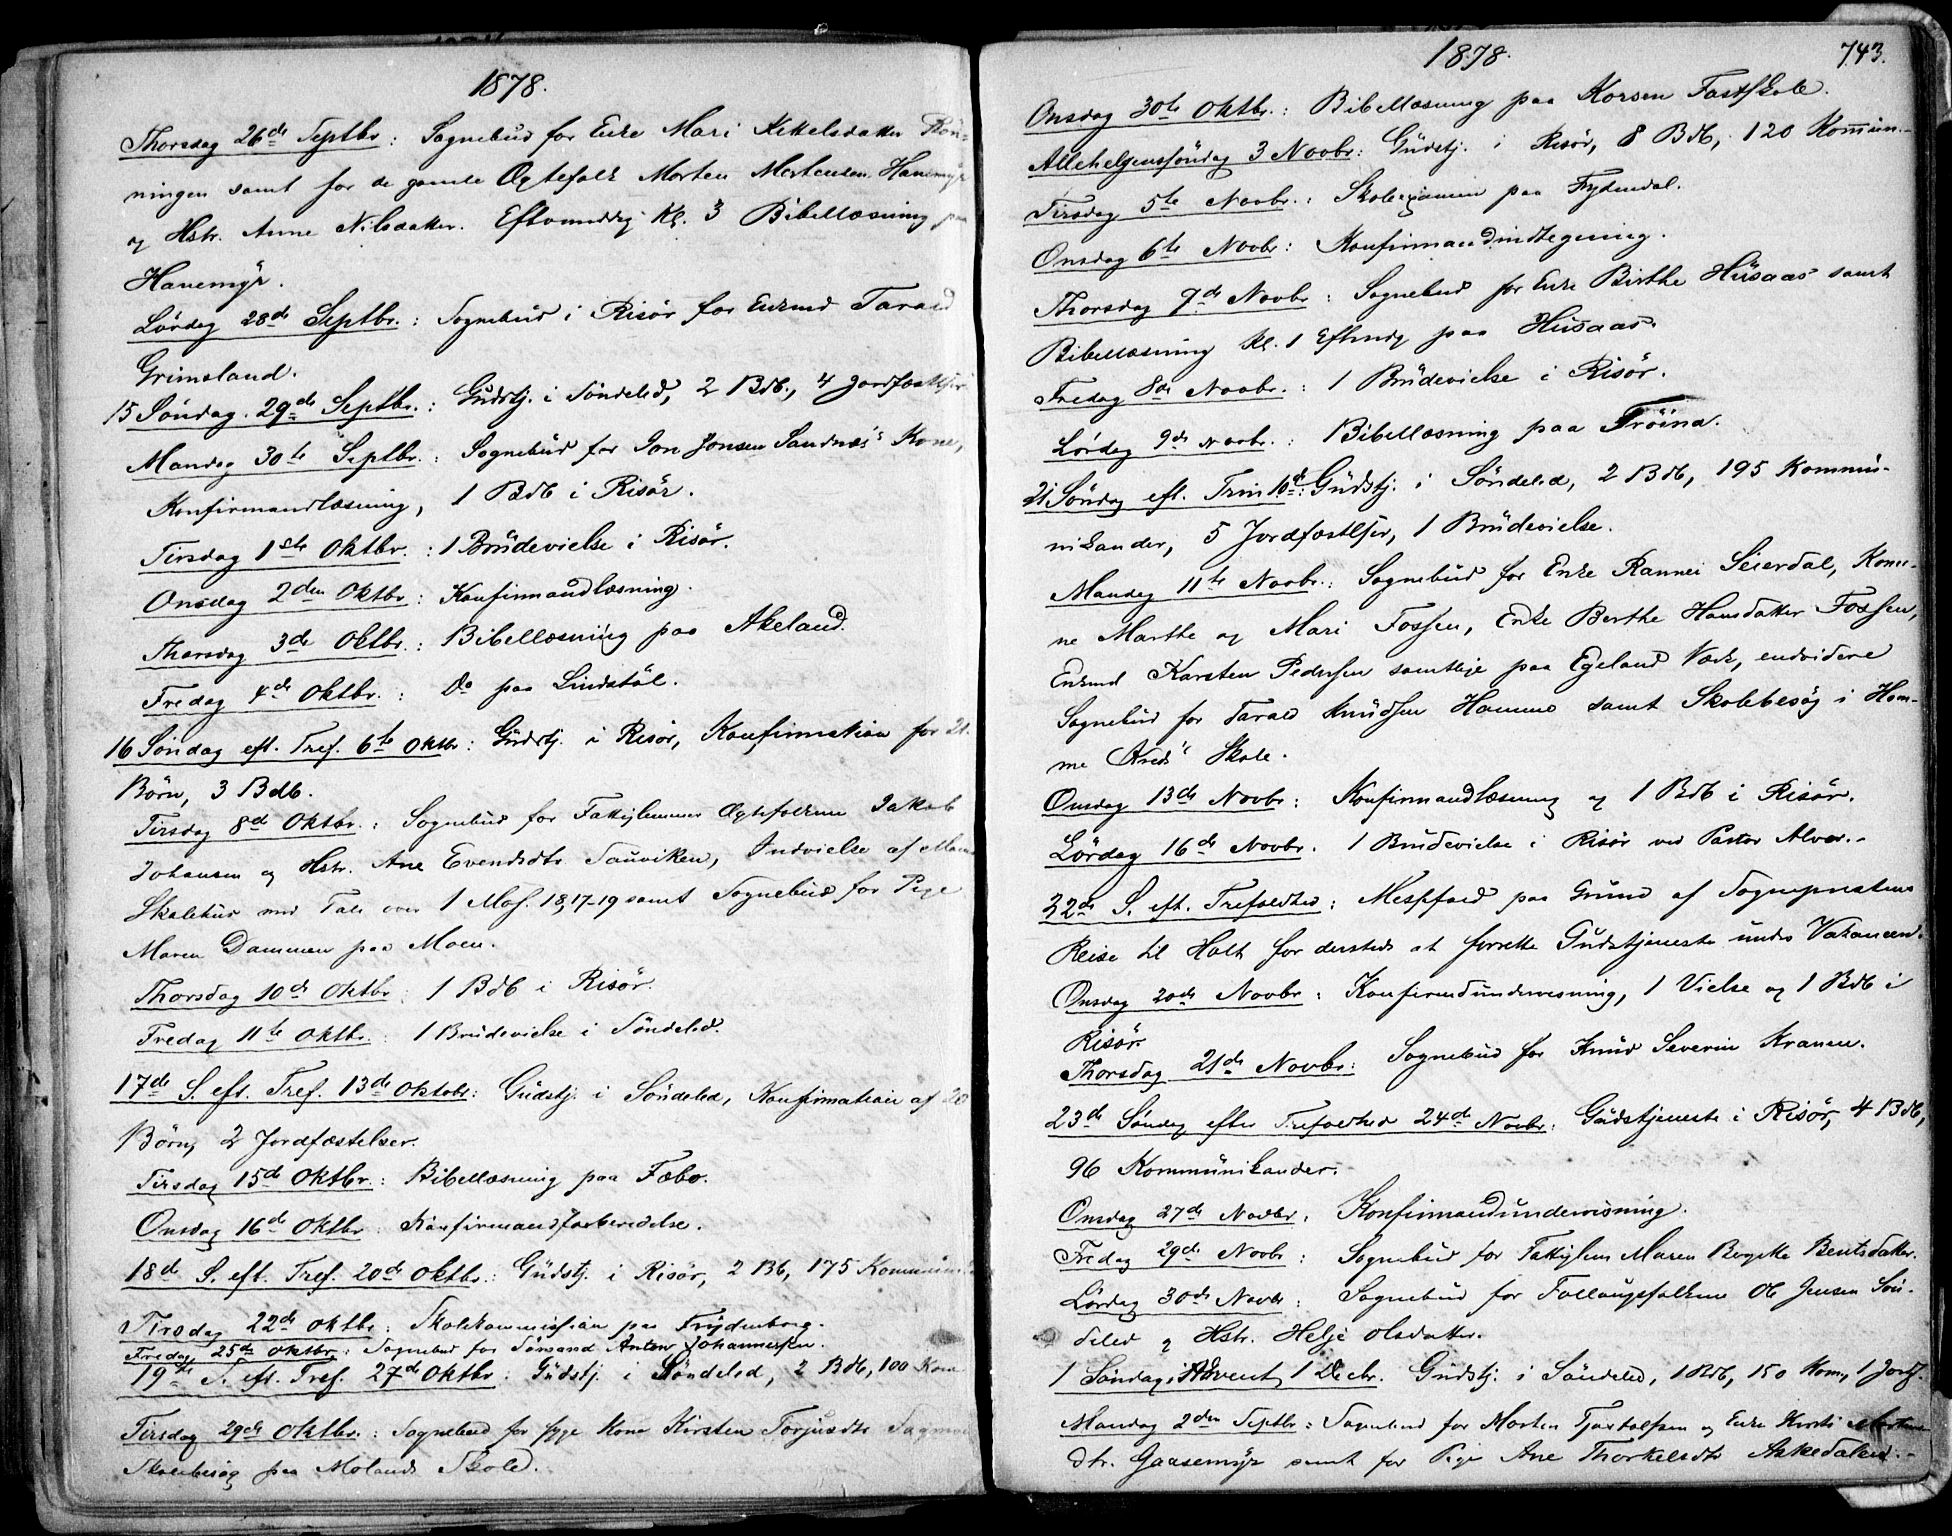 1878.
Thorsdag 26de Septbr: Sognebud for Enke Mari Kittelsdatter Røn-
ningen samt for de gamle Ægtefolk Morten Mortensen Hanemyr
og Hstr. Anne Nilsdatter. Eftermddg Kl. 3 Bibellæsning paa
Hanemyr.
Lördag 28de Septbr.: Sognebud i Risör for Enkmd Tarald
Grimsland.
15 Söndag. 29de Septbr.: Gudstj. i Söndeled, 2 Bdb., 4 Jordfæstelser
Mandag 30te Septbr.: Sognebud for Jon Jonsen Sandnæs's Kone,
Konfirmandlæsning, 1 Bdb i Risör.
Tirsdag 1ste Oktbr.: 1 Brudevielse i Risör.
Onsdag 2den Oktbr: Konfirmandlæsning.
Thorsdag 3de Oktbr.: Bibellæsning paa Akeland.
Fredag 4de Oktbr.: Do paa Lindstöl.
16 Söndag eft. Tref. 6te Oktbr: Gudstj. i Risör, Konfirmation for 21.
Börn, 3 Bdb.
Tirsdag 8de Oktbr.: Sognebud for Fattiglemmer Ægtefolkene Jakob
Johansen og Hstr. Ane Evendsdtr Sauviken, Indvielse af Moens
Skolehus med Tale over 1 Mos. 18,17-19 samt Sognebud for Pige
Maren Dammen paa Moen.
Thorsdag 10de Oktbr: 1 Bdb i Risör.
Fredag 11te Oktbr.: 1 Brudevielse i Söndeled.
17de S. eft. Tref. 13de Oktobr: Gudstj. i Söndeled, Konfirmation af 20
Börn, 2 Jordfæstelser.
Tirsdag 15de Oktbr.: Bibellæsning paa Fæbo.
Onsdag 16de Oktbr: Konfirmandforberedelse.
18de S. eft. Tref. 20de Oktbr.: Gudstj. i Risör, 2 Bb, 175 Kommuni
Tirsdag 22de Oktbr: Skolekommission paa Frydenborg.
Fredag 25de Oktbr: Sognebud for Sömand Anton Johannesen.
19te S. eft. Tref. 27de Oktbr: Gudstj. i Söndeled, 2 Bdb, 100 Kom
Tirsdag 29de Oktbr.: Sognebud for syge Kone Kirsten Torjusdtr
Skolebesög paa Molands Skole.
1878. 743.
Onsdag 30te Oktbr.: Bibellæsning paa Korsen Fastskole.
Allehelgenssöndag 3 Novbr: Gudstj. i Risör, 8 Bdb, 120 Kommun.-
Tirsdag 5te Novbr.: Skoleexamen paa Frydendal.
Onsdag 6te Novbr: Konfirmandindtegning.
Thorsdag 7de Novbr: Sognebud for Enke Birthe Husaas samt
Bibellæsning Kl. 1 Eftmdg paa Husaas.
Fredag 8de Novbr.: 1 Brudevielse i Risör.
Lördag 9de Novbr.: Bibellæsning paa Fröina.
21 Söndag eft. Trin 10d: Gudstj. i Söndeled, 2 Bdb, 195 Kommu-
nikander, 5 Jordfæstlser, 1 Brudevielse.
Mandag 11te Novbr.: Sognebud for Enke Rannei Seierdal, Koner-
ne Marthe og Mari Fossen, Enke Berthe Hansdatter Fossen,
Enkmd Karsten Pedersen samtlige paa Egeland Værk, endvidere
Sognebud for Tarald Knudsen Hommo samt Skolebesög i Hom-
me Kreds' Skole.
Onsdag 13de Novbr: Konfirmandlæsning og 1 Bdb i Risör.
Lördag 16de Novbr. 1 Brudevielse i Risör ved Pastor Alver.-
22de S. eft. Trefoldhed: Messfald paa Grund af Sognepræstens
Reise til Holt for dersteds at forrette Gudstjeneste under Vakancen.
Onsdag 20de Novbr: Konfirmdundervisning, 1 Vielse og 1 Bdb i
Risör.
Thorsdag 21de Novbr: Sognebud for Knud Severin Kranen.
23de Söndag efter Trefoldhed 24de Novbr: Gudstjeneste i Risör, 4 Bdb,
96 Kommunikander.
Onsdag 27de Novbr. Konfirmandundervisning.
Fredag 29de Novbr: Sognebud for Fattiglem Maren Birgitte Bentsdatter.
Lördag 30de Novbr: Sognebud for Follaugsfolkene Ole Jensen Sön-
deled og Hstr. Helje Olsdatter.
1 Söndag i Advent, 1 Decbr. Gudstj. i Söndeled, 1 Bdb, 150 Kom, 1 Jordf.
Mandag 2den Septbr: Sognebud for Morten Tjøstolfsen og Enke Kirsti Mortens
dtr. Gaasemyr samt for Pige Ane Thorkelsdtr Askedalen.-